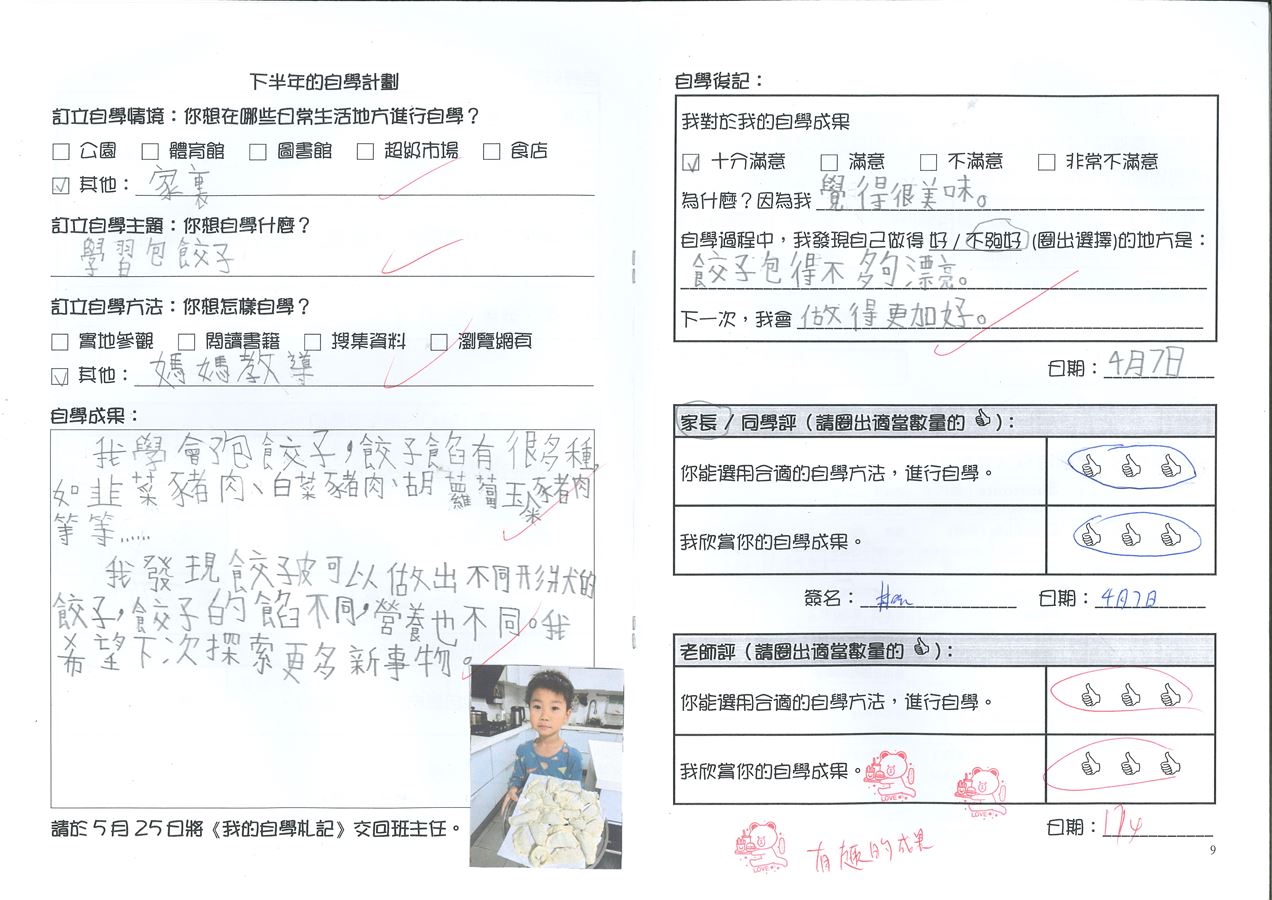 下半年的自學計劃
訂立自學情境：你想在哪些日常生活地方進行自學？
□ 公園 □ 體育館 □ 圖書館 □ 超級市場 □ 食店
☑ 其他：家裏
訂立自學主題：你想自學什麼？
學習包餃子
訂立自學方法：你想怎樣自學？
□ 實地參觀 □ 閱讀書籍 □ 搜集資料 □ 瀏覽網頁
☑ 其他：媽媽教導
自學成果：
我學會了包餃子，餃子餡有很多種，
如韭菜豬肉、白菜豬肉、胡蘿蔔玉米豬肉
等等……
我發現餃子皮可以做出不同形狀的
餃子，餃子的餡不同，營養也不同。我
希望下次探索更多新事物。
請於5月25日將《我的自學札記》交回班主任。
自學後記：
我對於我的自學成果
☑ 十分滿意 □ 滿意 □ 不滿意 □ 非常不滿意
為什麼？因為我覺得很美味。
自學過程中，我發現自己做得好/不夠好(圈出選擇)的地方是：
餃子包得不夠漂亮。
下一次，我會做得更加好。
日期：4月7日
家長 / 同學評（請圈出適當數量的👍）：
你能選用合適的自學方法，進行自學。 👍 👍 👍
我欣賞你的自學成果。 👍 👍 👍
簽名： 日期：4月7日
老師評（請圈出適當數量的👍）：
你能選用合適的自學方法，進行自學。 👍 👍 👍
我欣賞你的自學成果。 👍 👍 👍
LOVE
LOVE
日期：17/4
LOVE
有趣的成果
9